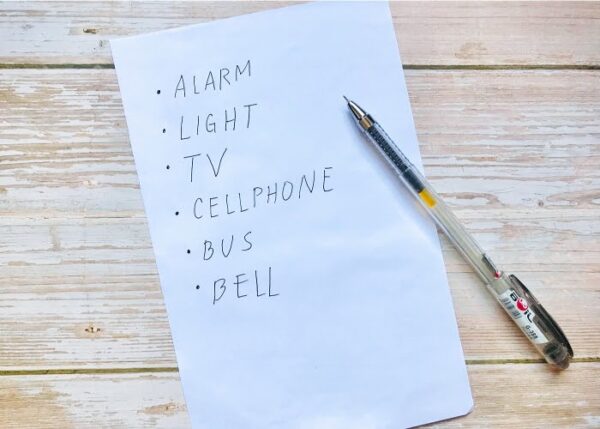 • ALARM
• LIGHT
• TV
• CELLPHONE
• BUS
• BELL